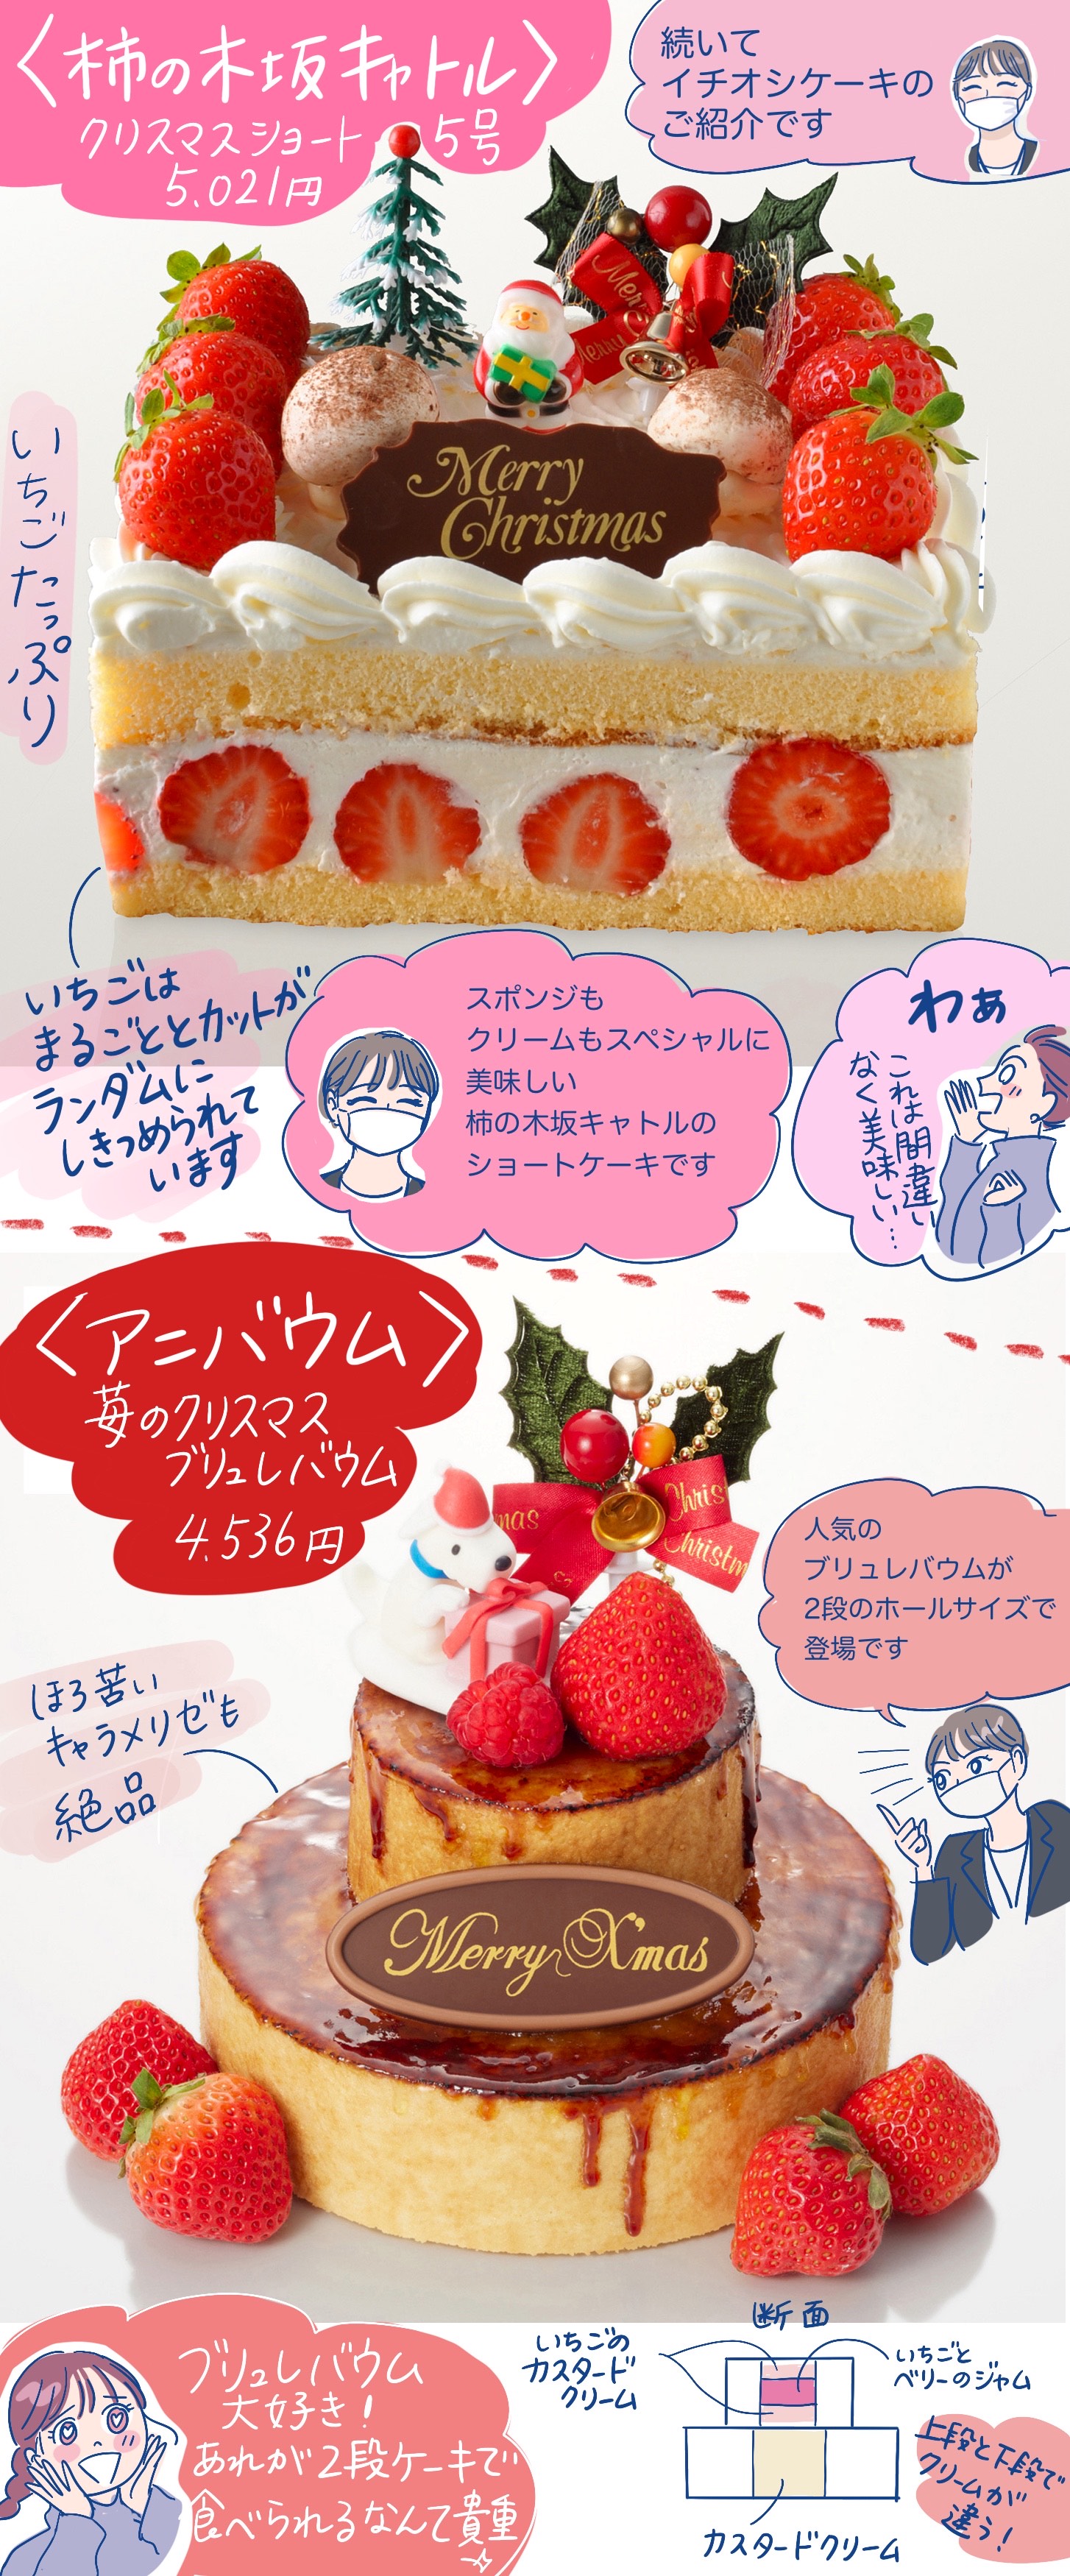 〈柿の木坂キャトル〉
クリスマスショート 5号
5.021円
続いて
イチオシケーキの
ご紹介です
Merry
Christmas
いちごたっぷり
いちごは
まるごととカットが
ランダムに
しきつめられて
います
スポンジも
クリームもスペシャルに
美味しい
柿の木坂キャトルの
ショートケーキです
わぁ
これは間違い
なく美味しい…
〈アニバウム〉
苺のクリスマス
ブリュレバウム
4.536円
人気の
ブリュレバウムが
2段のホールサイズで
登場です
ほろ苦い
キャラメリゼも
絶品
Merry X'mas
ブリュレバウム
大好き!
あれが2段ケーキで
食べられるなんて貴重
断面
いちごの
カスタード
クリーム
いちごと
ベリーのジャム
上段と下段で
クリームが
違う!
カスタードクリーム